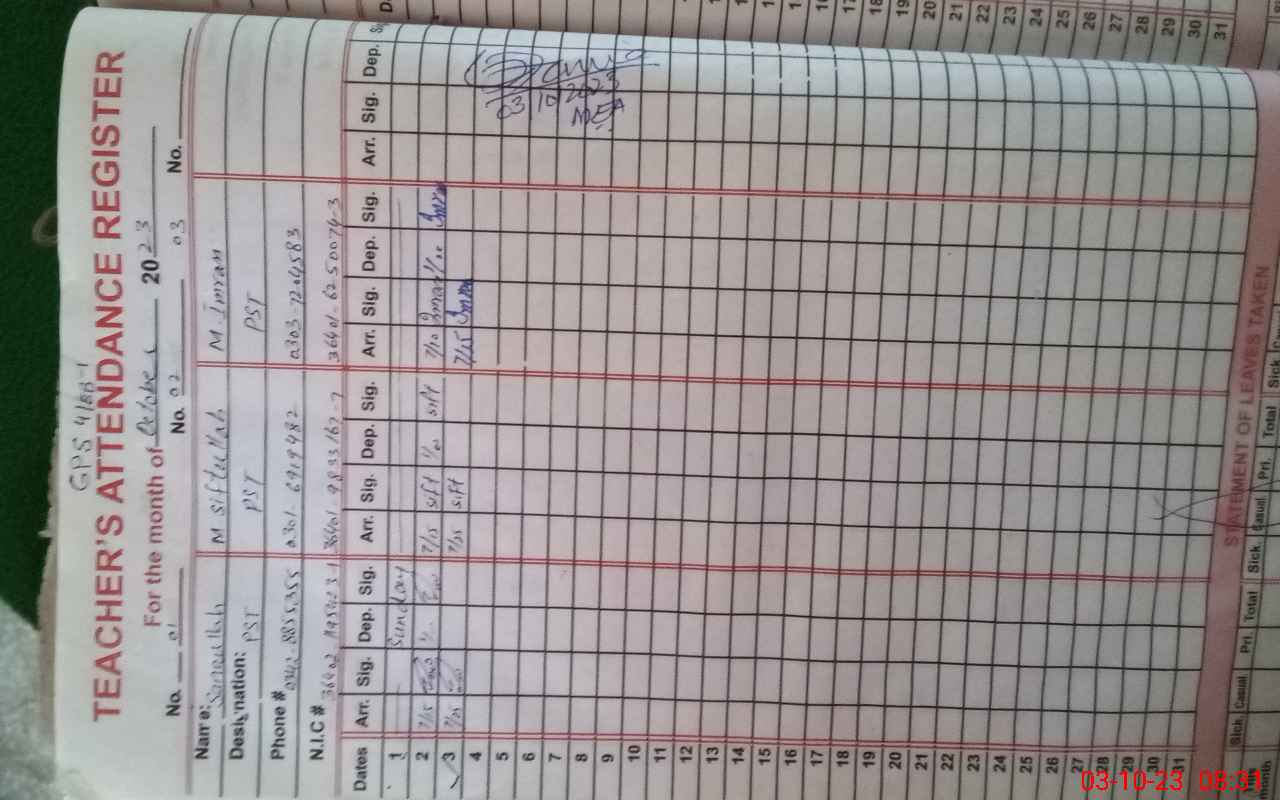 GPS 4/BB-1
TEACHER'S ATTENDANCE REGISTER
For the month of October 2023
No. 01 No. 02 03 No.
Name: Sanaullah M Siftullah M. Imran
Designation: PST PST PST
Phone # 0342-8855355 0301-6919482 0303-7264583
N.I.C # 36401-9833167-7 36401-6250074-3
Dates Arr. Sig. Dep. Sig. Arr. Sig. Dep. Sig. Arr. Sig. Dep. Sig. Arr. Sig. Dep.
1 Sunday
2 7/15 7/15 Sift Sift 7/10 Imran Imran
3 7/25 7/25 Sift 7/15 Imran
4
5
6
7
8
9
10
11
12
13
14
15
16
17
18
19
20
21
22
23
24
25
26
27
28
29
30
31
03/10/2023
MEA
STATEMENT OF LEAVES TAKEN
month Sick. Casual Pri. Total Sick. Casual Pri. Total Sick
17
18
19
20
21
22
23
24
25
26
27
28
29
30
31
03-10-23 08:31